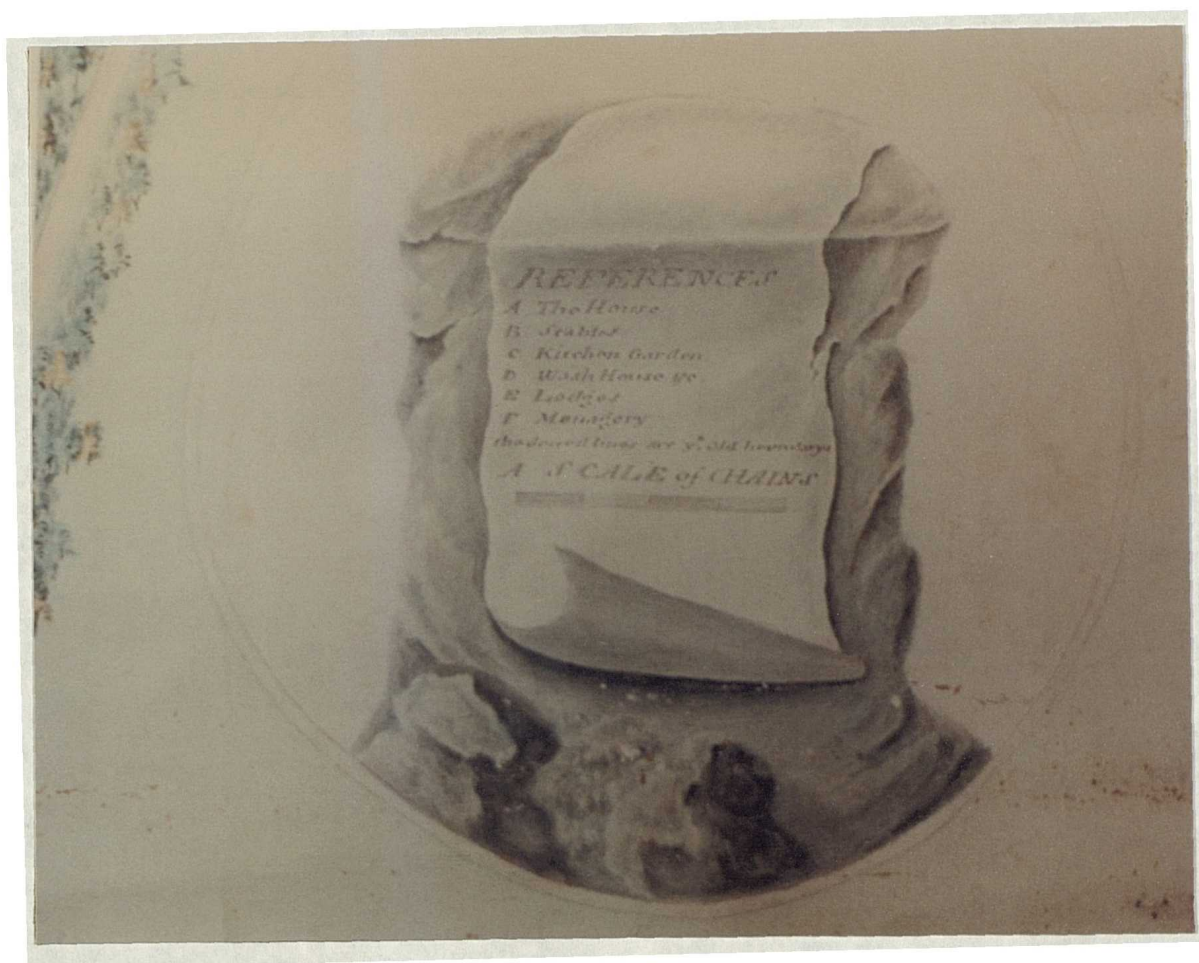 REFERENCES
A The House
B Stables
C Kitchen Garden
D Wash House &c
E Lodges
F Menagery
the dotted lines are yᵉ Old boundarys
A SCALE of CHAINS